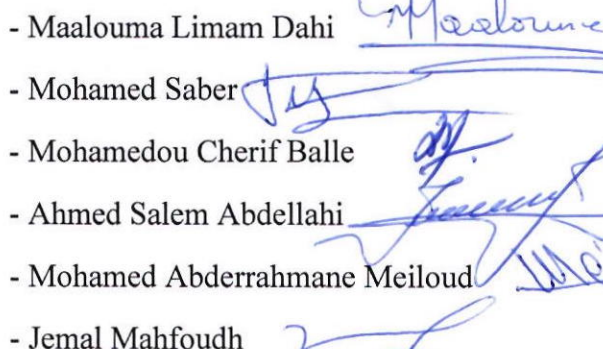 - Maalouma Limam Dahi Maalouma
- Mohamed Saber
- Mohamedou Cherif Balle
- Ahmed Salem Abdellahi
- Mohamed Abderrahmane Meiloud
- Jemal Mahfoudh